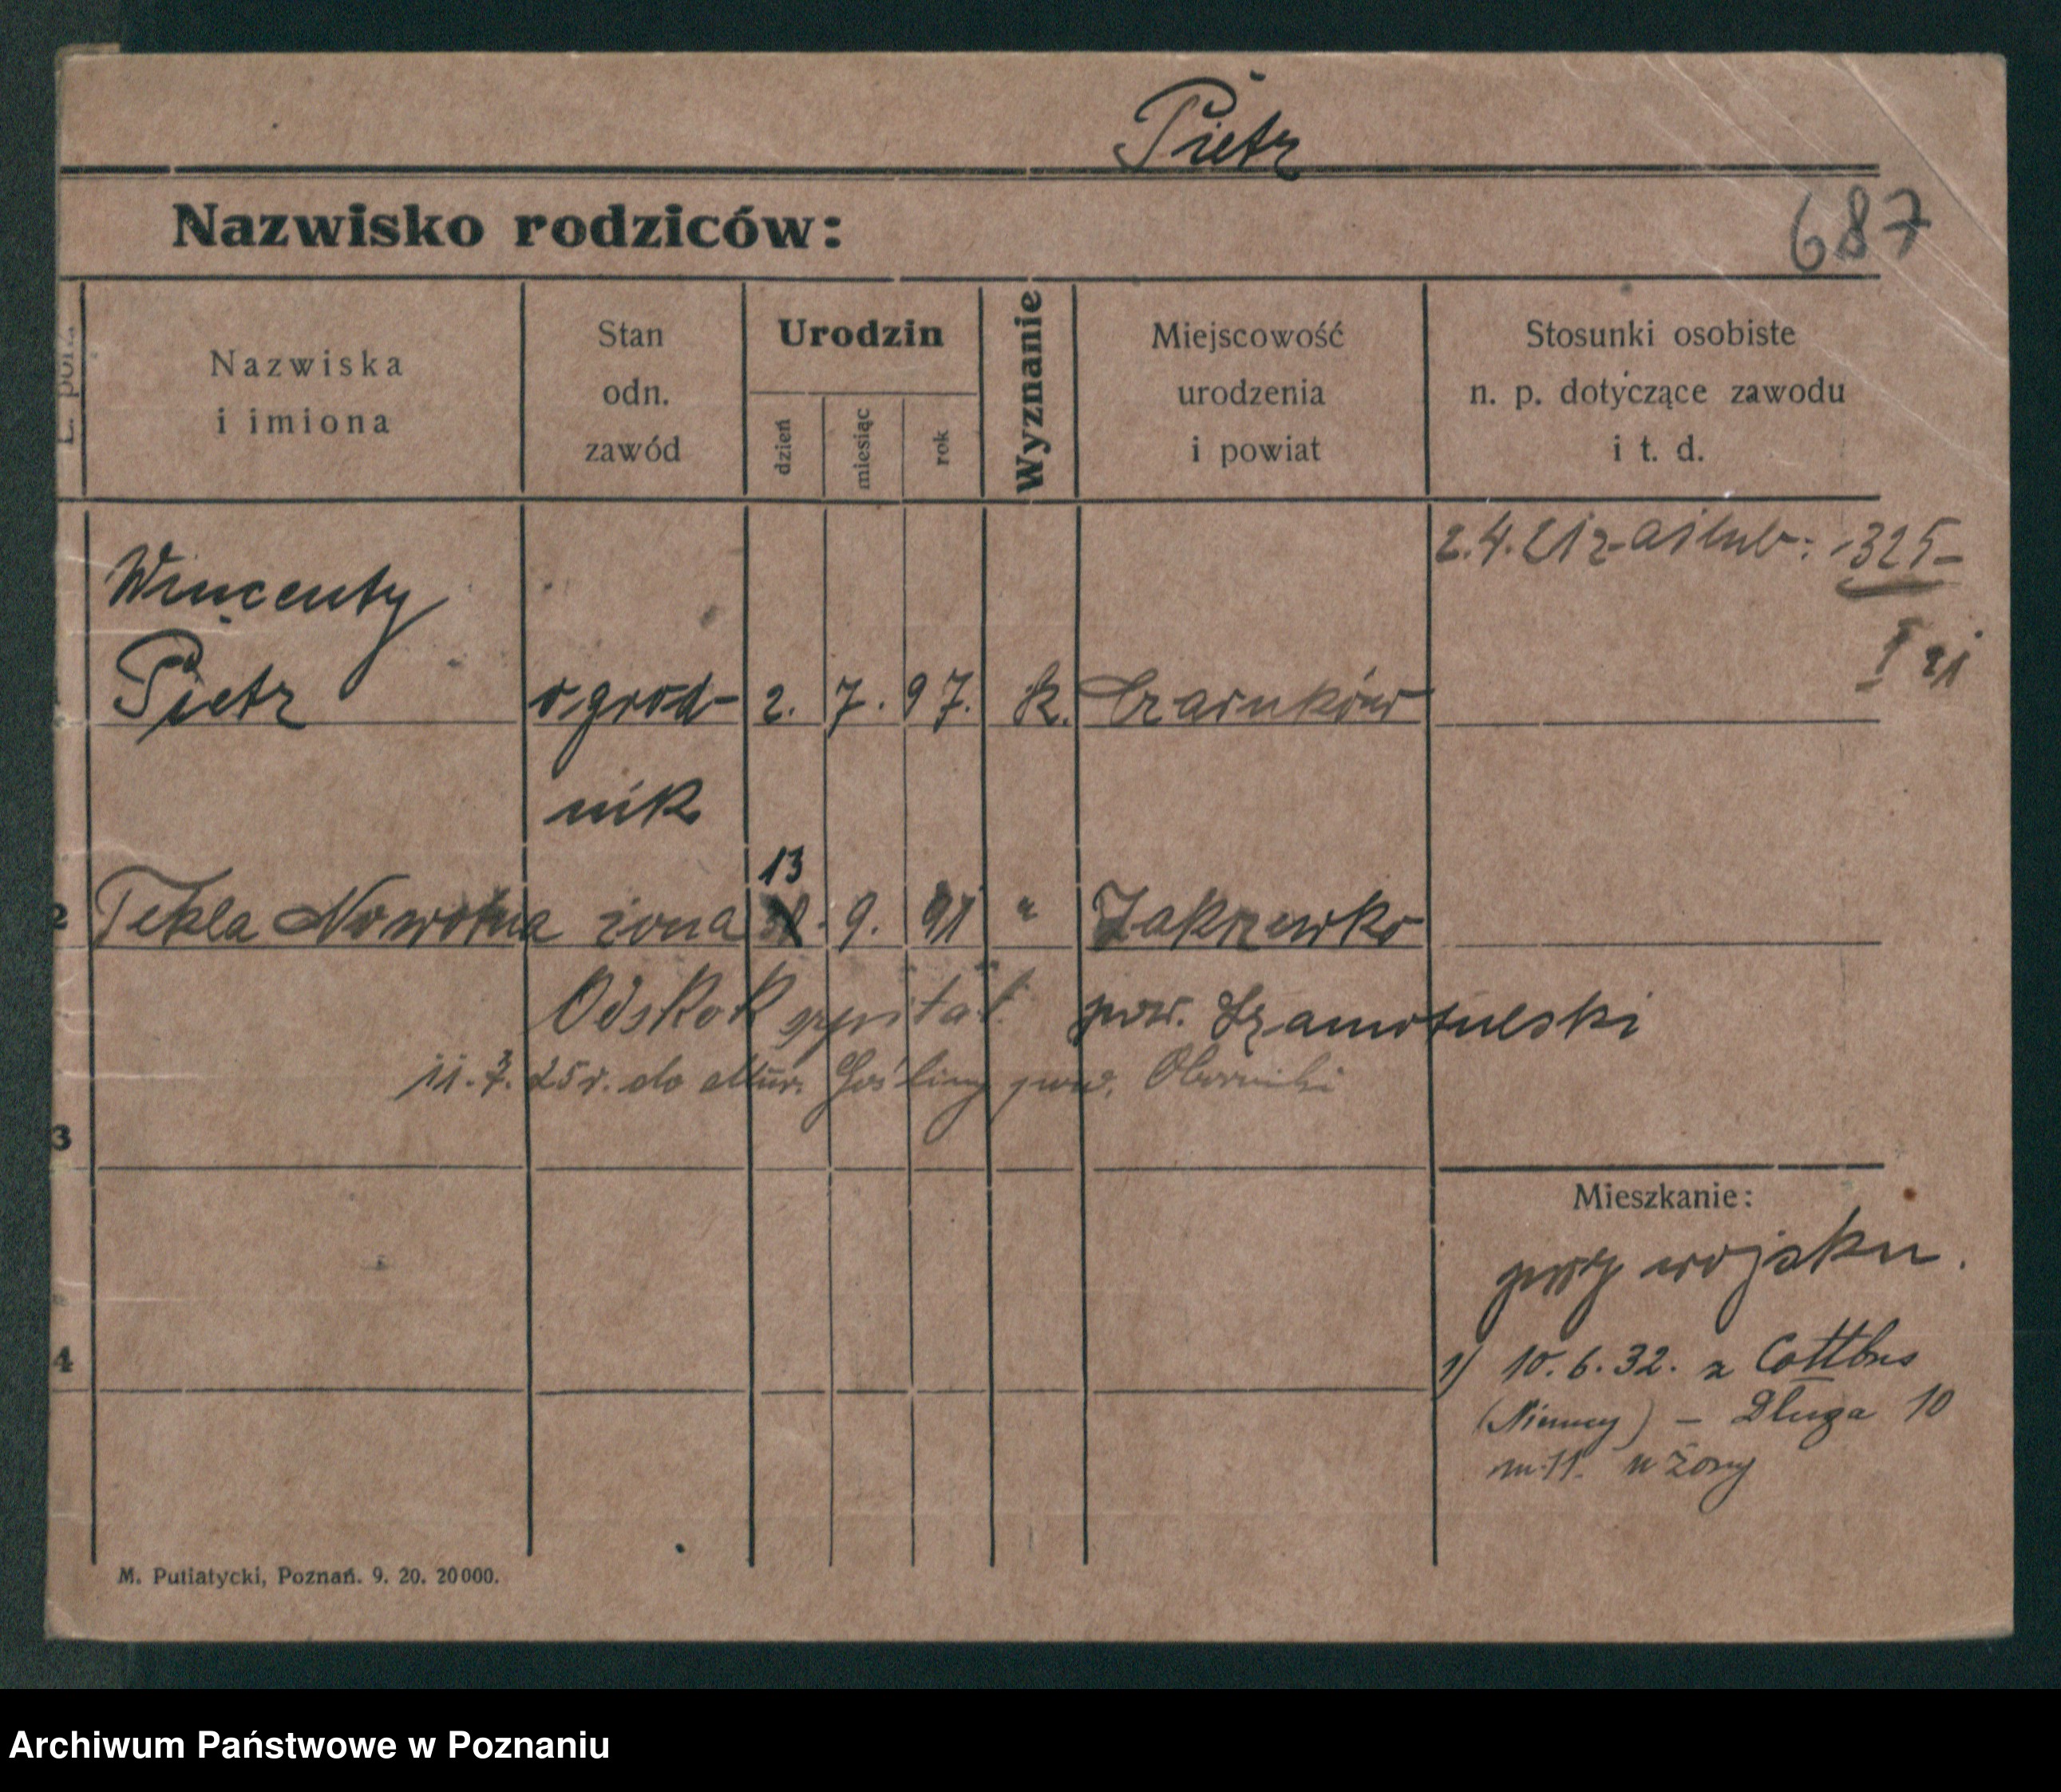 Pietz
Nazwisko rodziców:
687
L. porz.
Nazwiska
i imiona
Stan
odn.
zawód
Urodzin
dzień
miesiąc
rok
Wyznanie
Miejscowość
urodzenia
i powiat
Stosunki osobiste
n. p. dotyczące zawodu
i t. d.
2.4.21 zaślub: 325
Wincenty
Pietz
ogrod-
2. 7. 97. k. Czarnków
nik
13
2 Tekla Nowotna żona 9. 91 " Zakrzewko
pow. Szamotulski
11. 7. 25 r. do Mur. Gośliny pow. Oborniki
3
Mieszkanie:
przy wojsku.
4
1) 10. 6. 32. z Cottbus
(Niemcy) - Długa 10
m. 11. u żony
M. Putiatycki, Poznań. 9. 20. 20000.
Archiwum Państwowe w Poznaniu